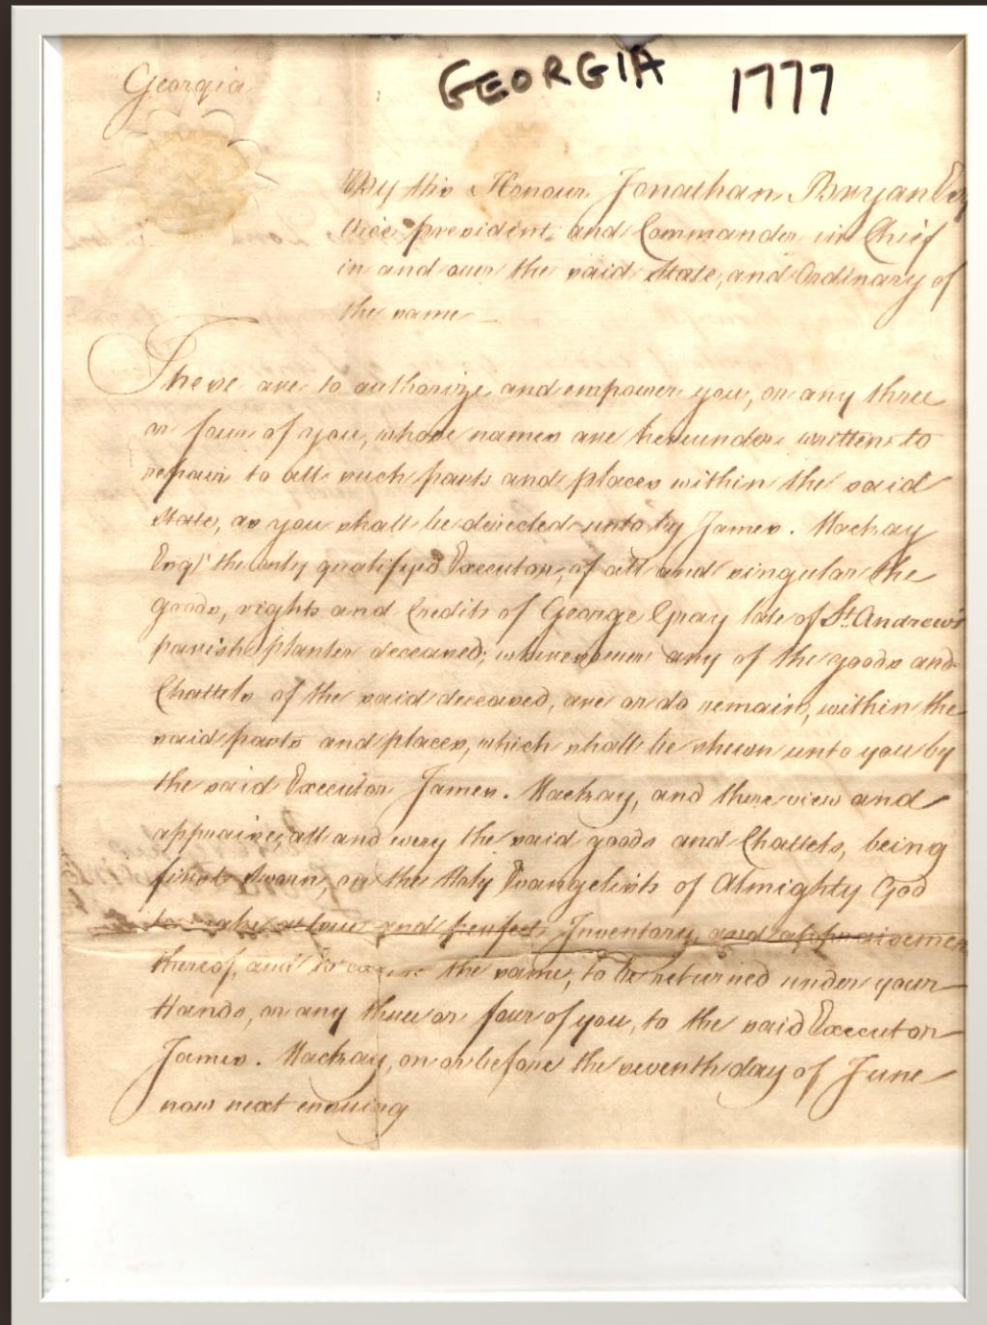 GEORGIA 1777
Georgia
By his Honour Jonathan Bryan Esq
Vice president and Commander in Chief
in and over the said State, and Ordinary of
the same
These are to authorize and empower you, or any three
or four of you, whose names are hereunder written to
repair to all such parts and places within the said
State, as you shall be directed unto by James. Mackay
Esqr. the only qualifyed Executor, of all and singular the
goods, rights and Credits of George Gray late of St. Andrew's
parish planter deceased; wheresoever any of the goods and
Chattels of the said deceased, are or do remain, within the
said parts and places, which shall be shewn unto you by
the said Executor James. Mackay, and there view and
appraise, all and every the said goods and Chattels, being
first sworn, on the Holy Evangelists of Almighty God
to make a true and perfect Inventory, and appraisement
thereof, and to cause the same, to be returned under your
Hands, or any three or four of you, to the said Executor
James. Mackay, on or before the seventh day of June
now next ensuing